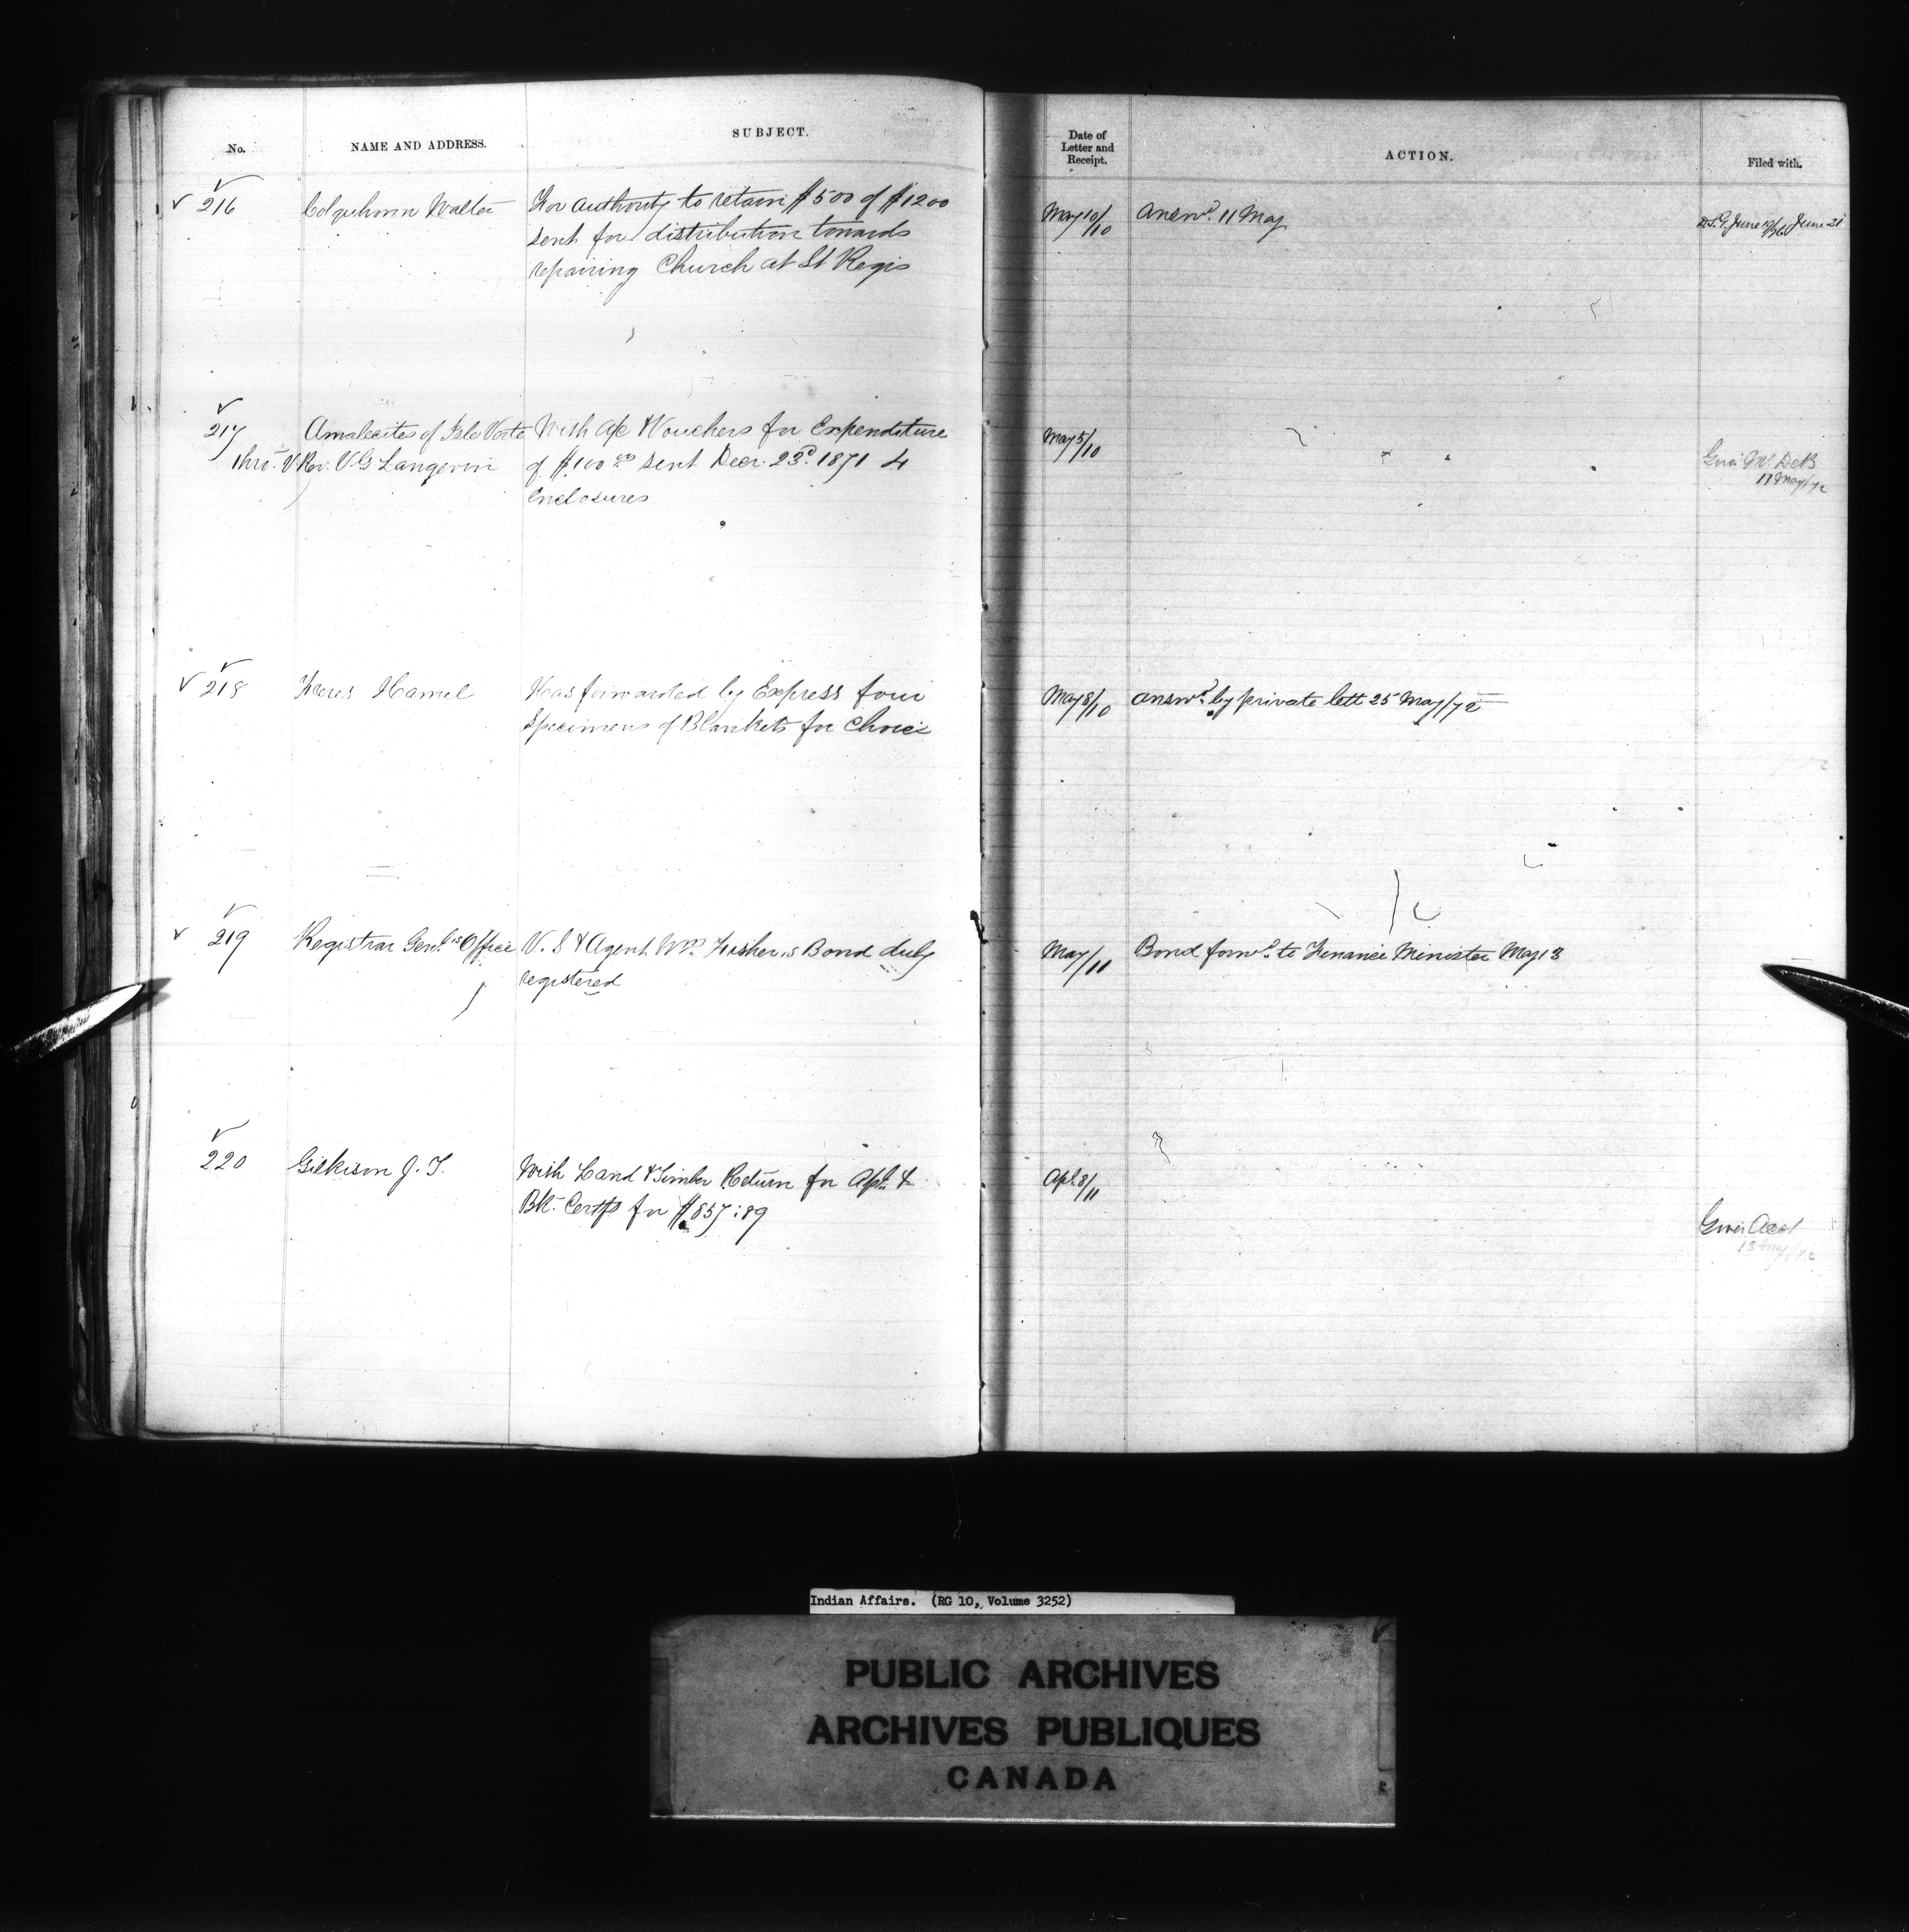 No.
NAME AND ADDRESS.
SUBJECT.
Date of
Letter and
Receipt.
ACTION.
Filed with.
216
Colquhoun Walter
For authority to retain $500 of $1200
sent for distribution towards
repairing Church at St Regis
May 10/10
Answd. 11 May
June 21
217
Amalecites of Isle Verte
thro. V. Rev. V G Langevin
With a/c & Vouchers for Expenditure
of $100 00 sent Decr. 23d. 1871 4
Enclosures
May 5/10
11 May/72
218
Freres Hamel
Has forwarded by Express four
Specimens of Blankets for Choice
May 8/10
answd. by private lett 25 May/72
219
Registrar Genl's Office
V. S & Agent Wm. Fisher,s Bond duly
registered
May/11
Bond forwd. to Finance Minister May 13
220
Gilkison J. T.
With Land & Timber Return for Apl. &
Bk. Certfs for $857:89
Apl. 8/11
Indian Affairs. (RG 10, Volume 3252)
PUBLIC ARCHIVES
ARCHIVES PUBLIQUES
CANADA